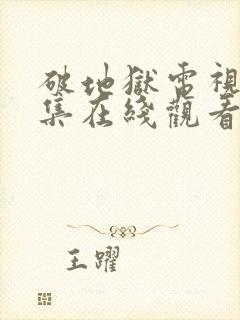 破地獄電視
集在綫觀看
王躍